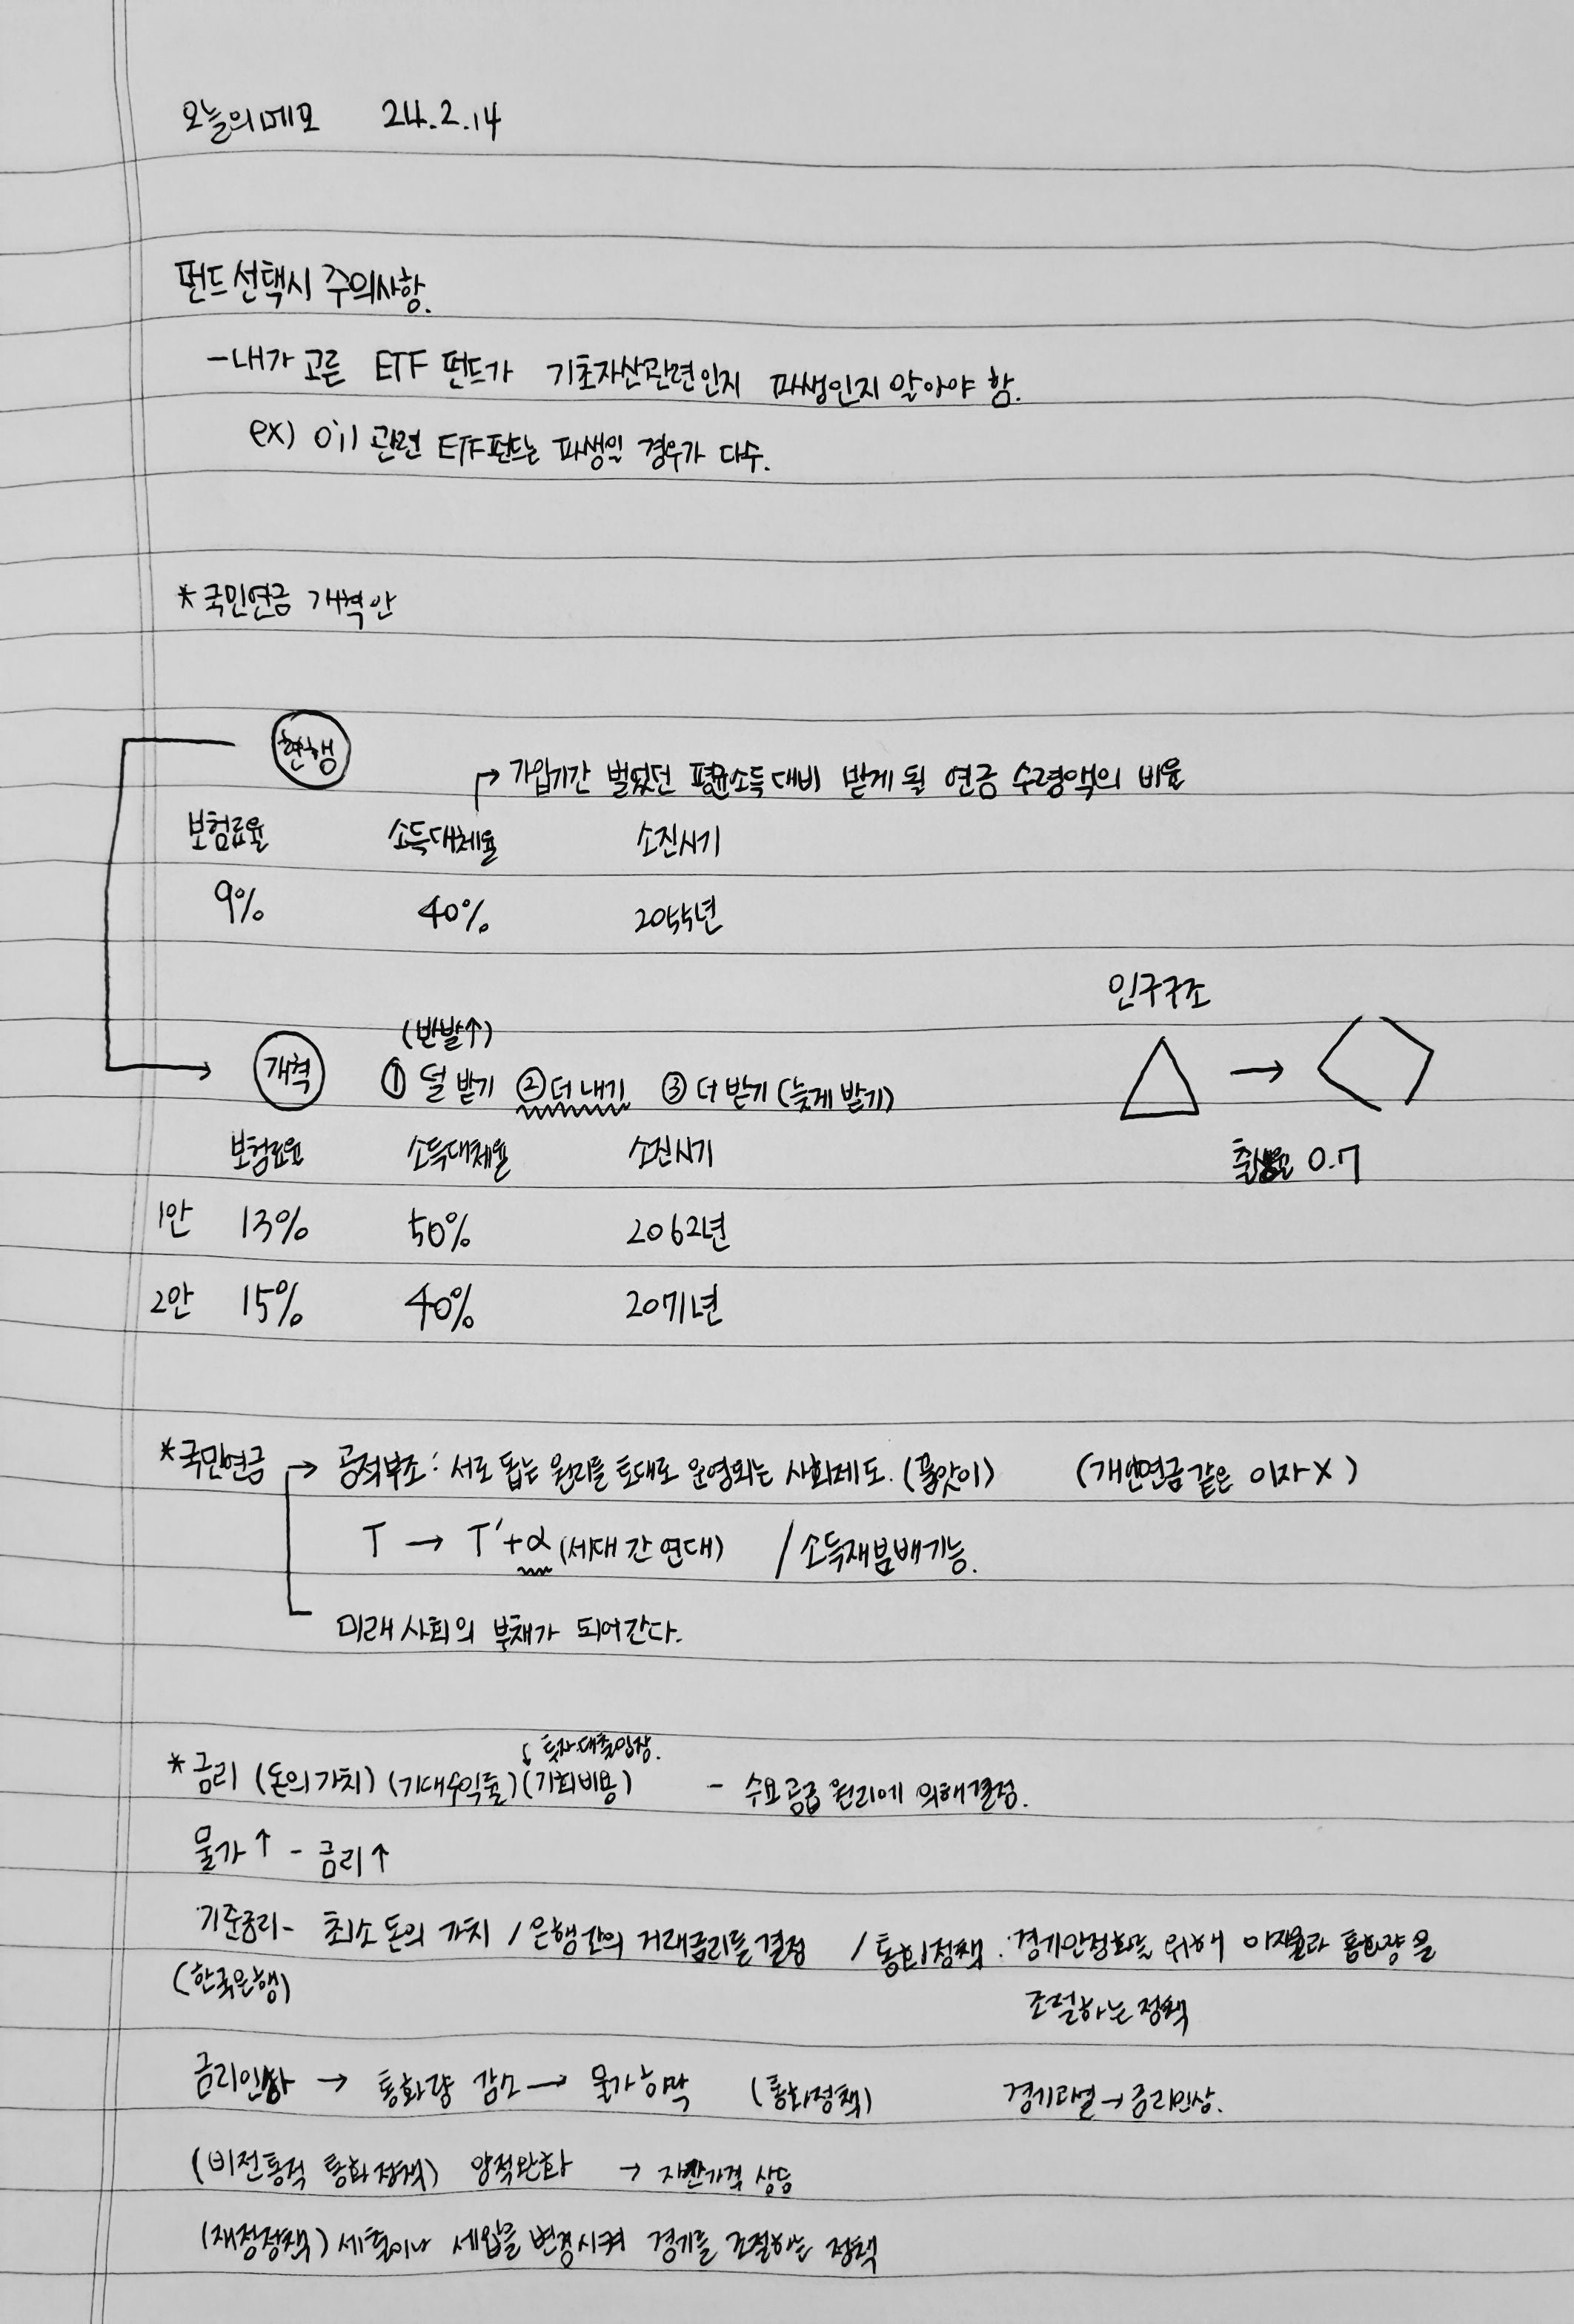 오늘의메모 24.2.14
펀드선택시 주의사항.
-내가 고른 ETF 펀드가 기초자산관련인지 파생인지 알아야 함.
ex) oil 관련 ETF펀드는 파생일 경우가 다수.
*국민연금 개혁안
현행
→ 가입기간 벌었던 평균소득대비 받게 될 연금 수령액의 비율
보험료율 소득대체율 소진시기
9% 40% 2055년
인구구조
(반발↑)
→ 개혁 ① 덜 받기 ② 더 내기 ③ 더 받기 (늦게 받기)
→
보험료율 소득대체율 소진시기
출생율 0.7
1안 13% 50% 2062년
2안 15% 40% 2071년
*국민연금 → 공적부조 : 서로 돕는 원리를 토대로 운영되는 사회제도. (품앗이) (개인연금 같은 이자 X)
T → T'+α (세대 간 연대) / 소득재분배기능.
미래 사회의 부채가 되어간다.
↓ 투자·대출입장.
*금리 (돈의가치) (기대수익률) (기회비용) - 수요공급 원리에 의해결정.
물가↑ - 금리↑
기준금리- 최소 돈의 가치 / 은행간의 거래금리를 결정 / 통화정책 : 경기안정화를 위해 이자율과 통화량을
(한국은행)
조절하는 정책
→ 통화량 감소 → 물가하락 (통화정책) 경기과열→금리인상.
(비전통적 통화정책) 양적완화 → 자산가격 상승
(재정정책) 세출이나 세입을 변경시켜 경기를 조절하는 정책